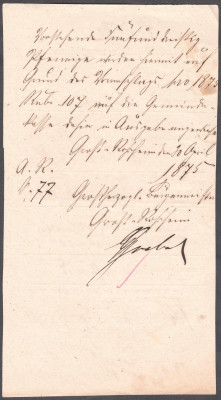 Vorstehende Fünfunddreißig
Pfennige werden hiermit auf
Grund des Voranschlags pro 1875
Rubr. 107 auf die Gemeinde-
kasse dahier in Ausgabe
Groß-Rohrheim den 10 April
A. R. 1875
S. 77 Großherzogl. Bürgermeisterei
Groß-Rohrheim